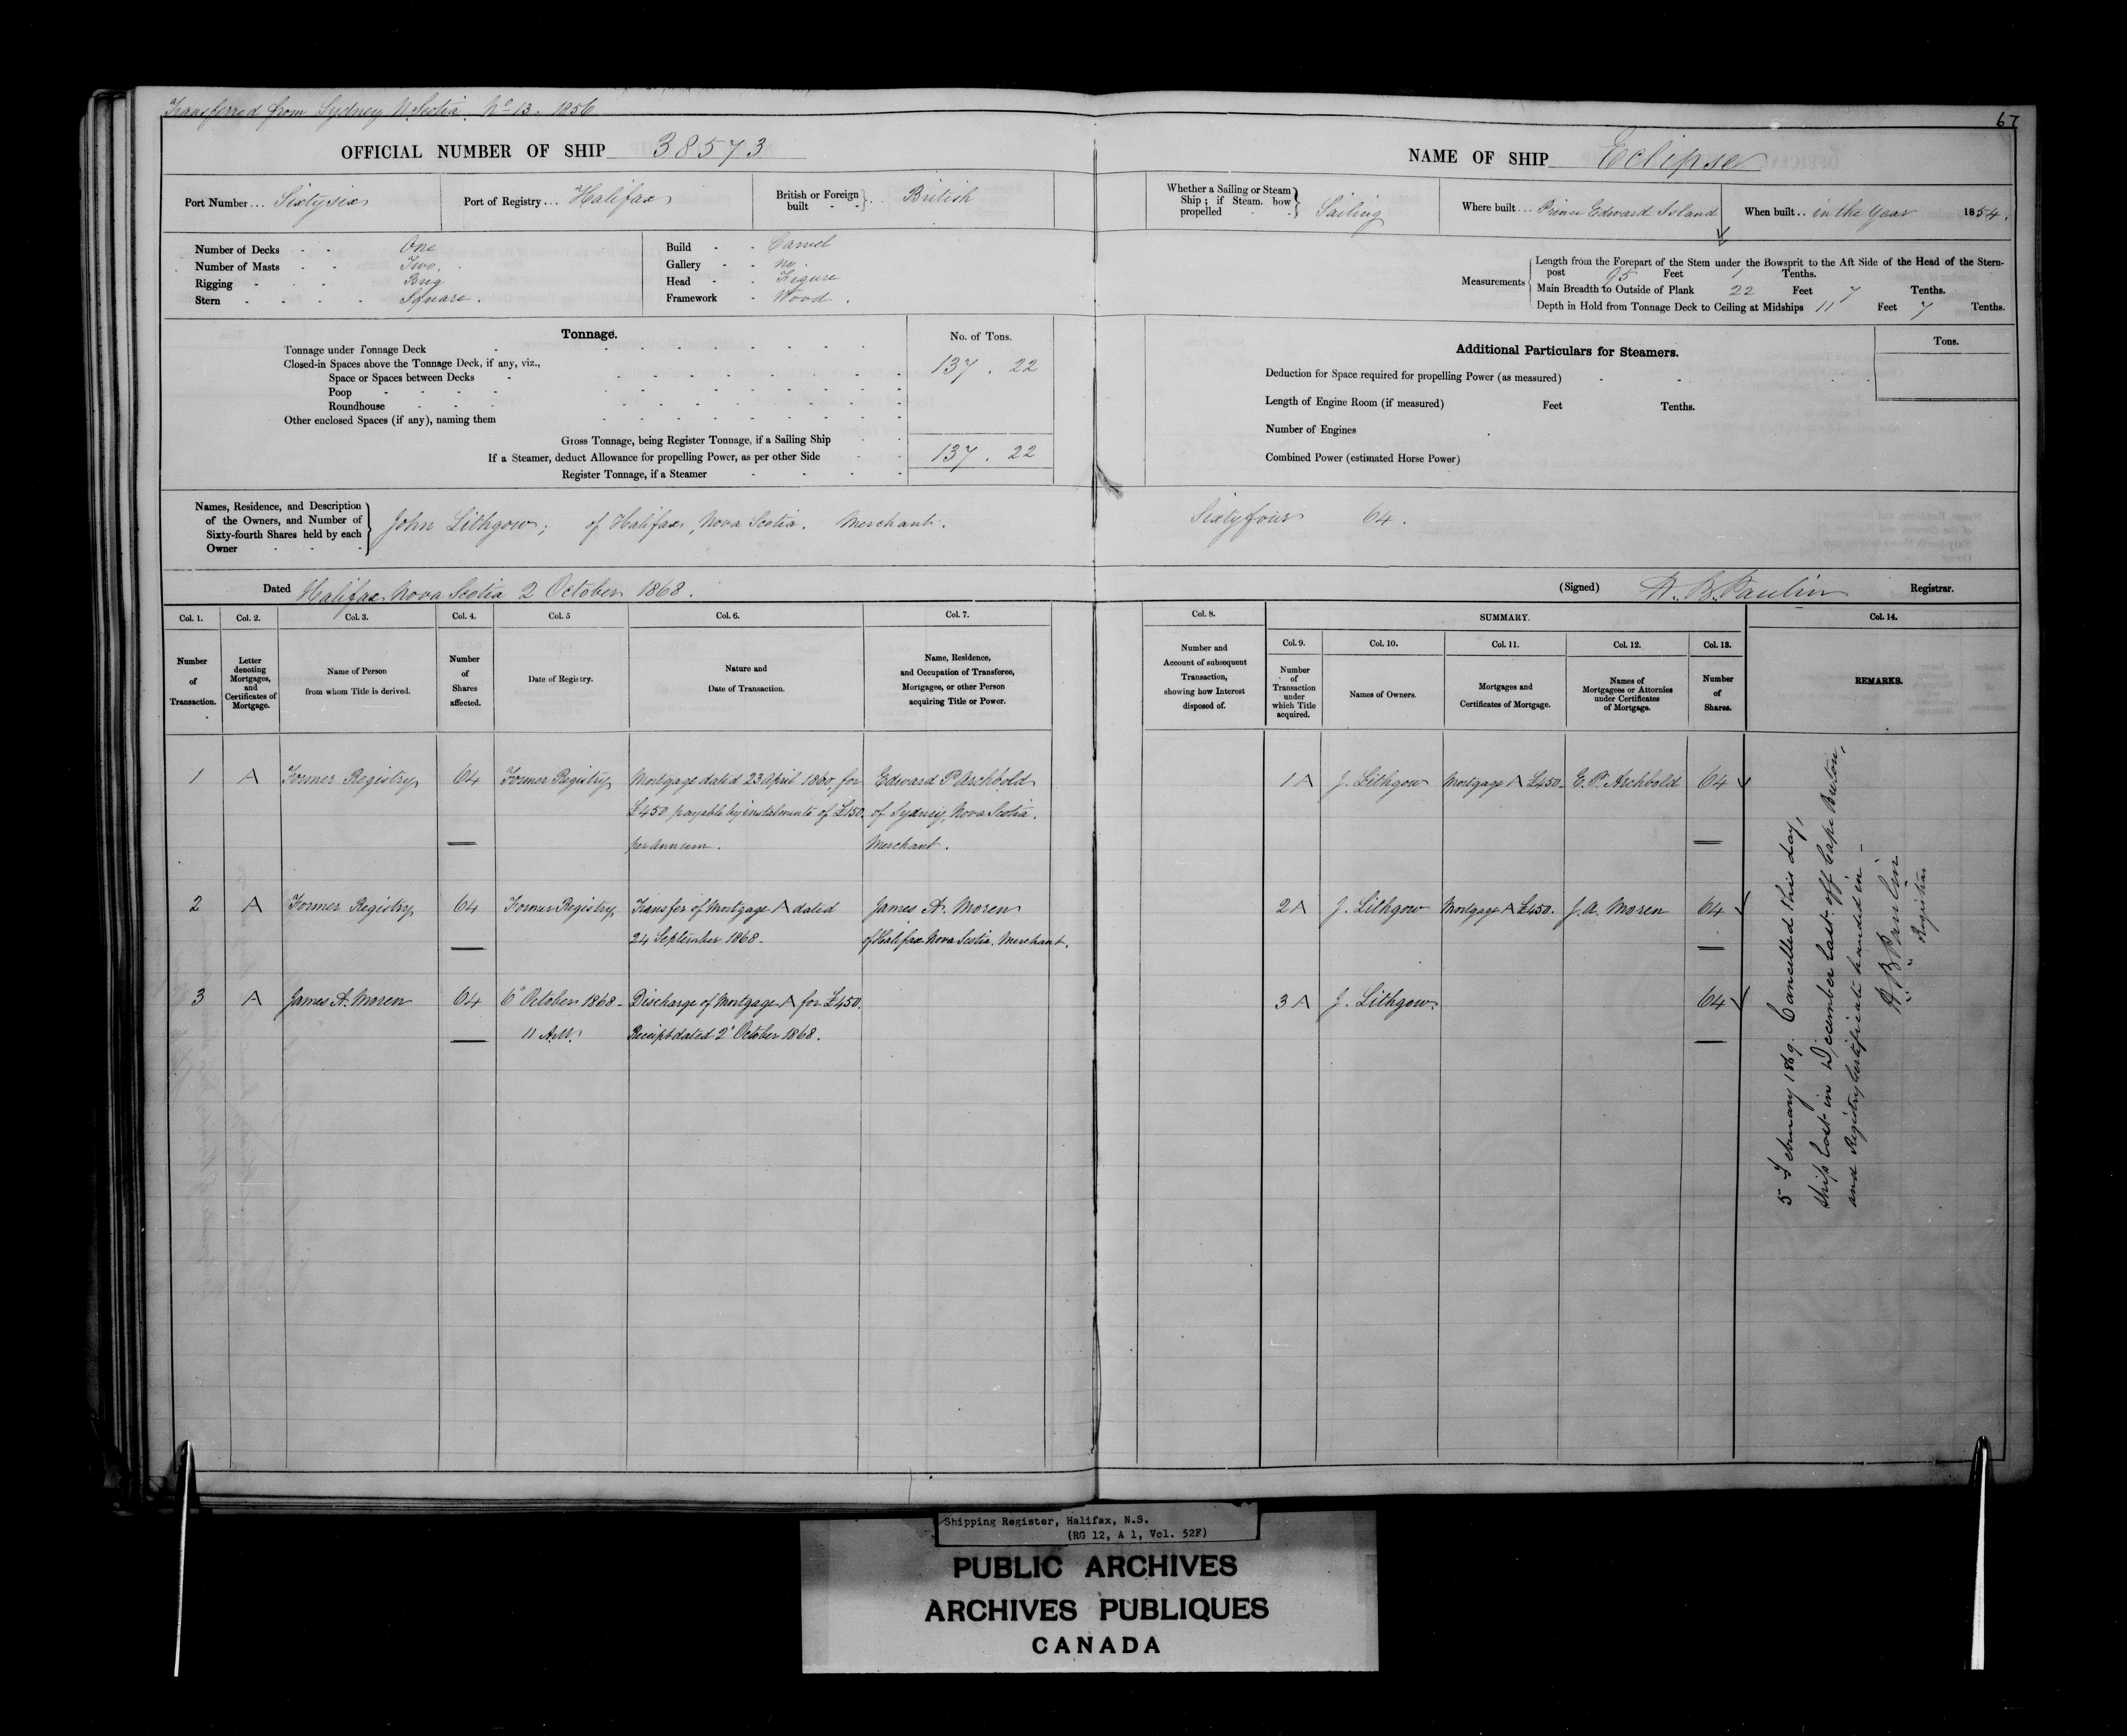 Transferred from Sydney N. Scotia. No 13. 1856
67
OFFICIAL NUMBER OF SHIP 38573
NAME OF SHIP Eclipse
Port Number... Sixtysix
Port of Registry... Halifax
British or Foreign built - - } .. British
Whether a Sailing or Steam Ship; if Steam, how propelled - - } Sailing
Where built... Prince Edward Island
When built.. in the Year 1854.
Number of Decks - - One
Number of Masts - - Two.
Rigging - - - Brig
Stern - - - - Square.
Build - - Carvel
Gallery - - no.
Head - - Figure
Framework - Wood.
Measurements
Length from the Forepart of the Stem under the Bowsprit to the Aft Side of the Head of the Stern-
post 95 Feet 1 Tenths.
Main Breadth to Outside of Plank 22 Feet 7 Tenths.
Depth in Hold from Tonnage Deck to Ceiling at Midships 11 Feet 7 Tenths.
Tonnage.
No. of Tons.
Tonnage under Tonnage Deck
Closed-in Spaces above the Tonnage Deck, if any, viz., 137. 22
Space or Spaces between Decks
Poop
Roundhouse
Other enclosed Spaces (if any), naming them
Gross Tonnage, being Register Tonnage, if a Sailing Ship
If a Steamer, deduct Allowance for propelling Power, as per other Side 137. 22
Register Tonnage, if a Steamer
Additional Particulars for Steamers.
Tons.
Deduction for Space required for propelling Power (as measured)
Length of Engine Room (if measured) Feet Tenths.
Number of Engines
Combined Power (estimated Horse Power)
Names, Residence, and Description
of the Owners, and Number of
Sixty-fourth Shares held by each
Owner
John Lithgow; of Halifax, Nova Scotia. Merchant.
Sixtyfour 64.
Dated Halifax Nova Scotia 2 October 1868.
(Signed) H. B. Paulin Registrar.
Col. 1.
Number
of
Transaction.
Col. 2.
Letter
denoting
Mortgages,
and
Certificates of
Mortgage.
Col. 3.
Name of Person
from whom Title is derived.
Col. 4.
Number
of
Shares
affected.
Col. 5
Date of Registry.
Col. 6.
Nature and
Date of Transaction.
Col. 7.
Name, Residence,
and Occupation of Transferee,
Mortgagee, or other Person
acquiring Title or Power.
Col. 8.
Number and
Account of subsequent
Transaction,
showing how Interest
disposed of.
SUMMARY.
Col. 9.
Number
of
Transaction
under
which Title
acquired.
Col. 10.
Names of Owners.
Col. 11.
Mortgages and
Certificates of Mortgage.
Col. 12.
Names of
Mortgagees or Attornies
under Certificates
of Mortgage.
Col. 13.
Number
of
Shares.
Col. 14.
REMARKS.
1 A Former Registry 64 Former Registry Mortgage dated 23 April 1860, for Edward P Archbold
£450 payable by instalments of £150. of Sydney, Nova Scotia.
per annum. Merchant.
1 A J. Lithgow Mortgage A £450. E. P. Archbold 64
2 A Former Registry 64 Former Registry Transfer of Mortgage A dated James A. Moren
24 September 1868. of Halifax Nova Scotia. Merchant.
2 A J. Lithgow Mortgage A £450. J. A. Moren 64
3 A James A. Moren 64 6 October 1868 Discharge of Mortgage A for £450.
11 A.M. Receipt dated 2 October 1868.
3 A J. Lithgow. 64
5 February 1869. Cancelled this day,
Ship lost in December last off Cape Breton,
and Registry Certificate handed in -
H. B. Paulin
Registrar
Shipping Register, Halifax, N.S.
(RG 12, A 1, Vol. 52F)
PUBLIC ARCHIVES
ARCHIVES PUBLIQUES
CANADA